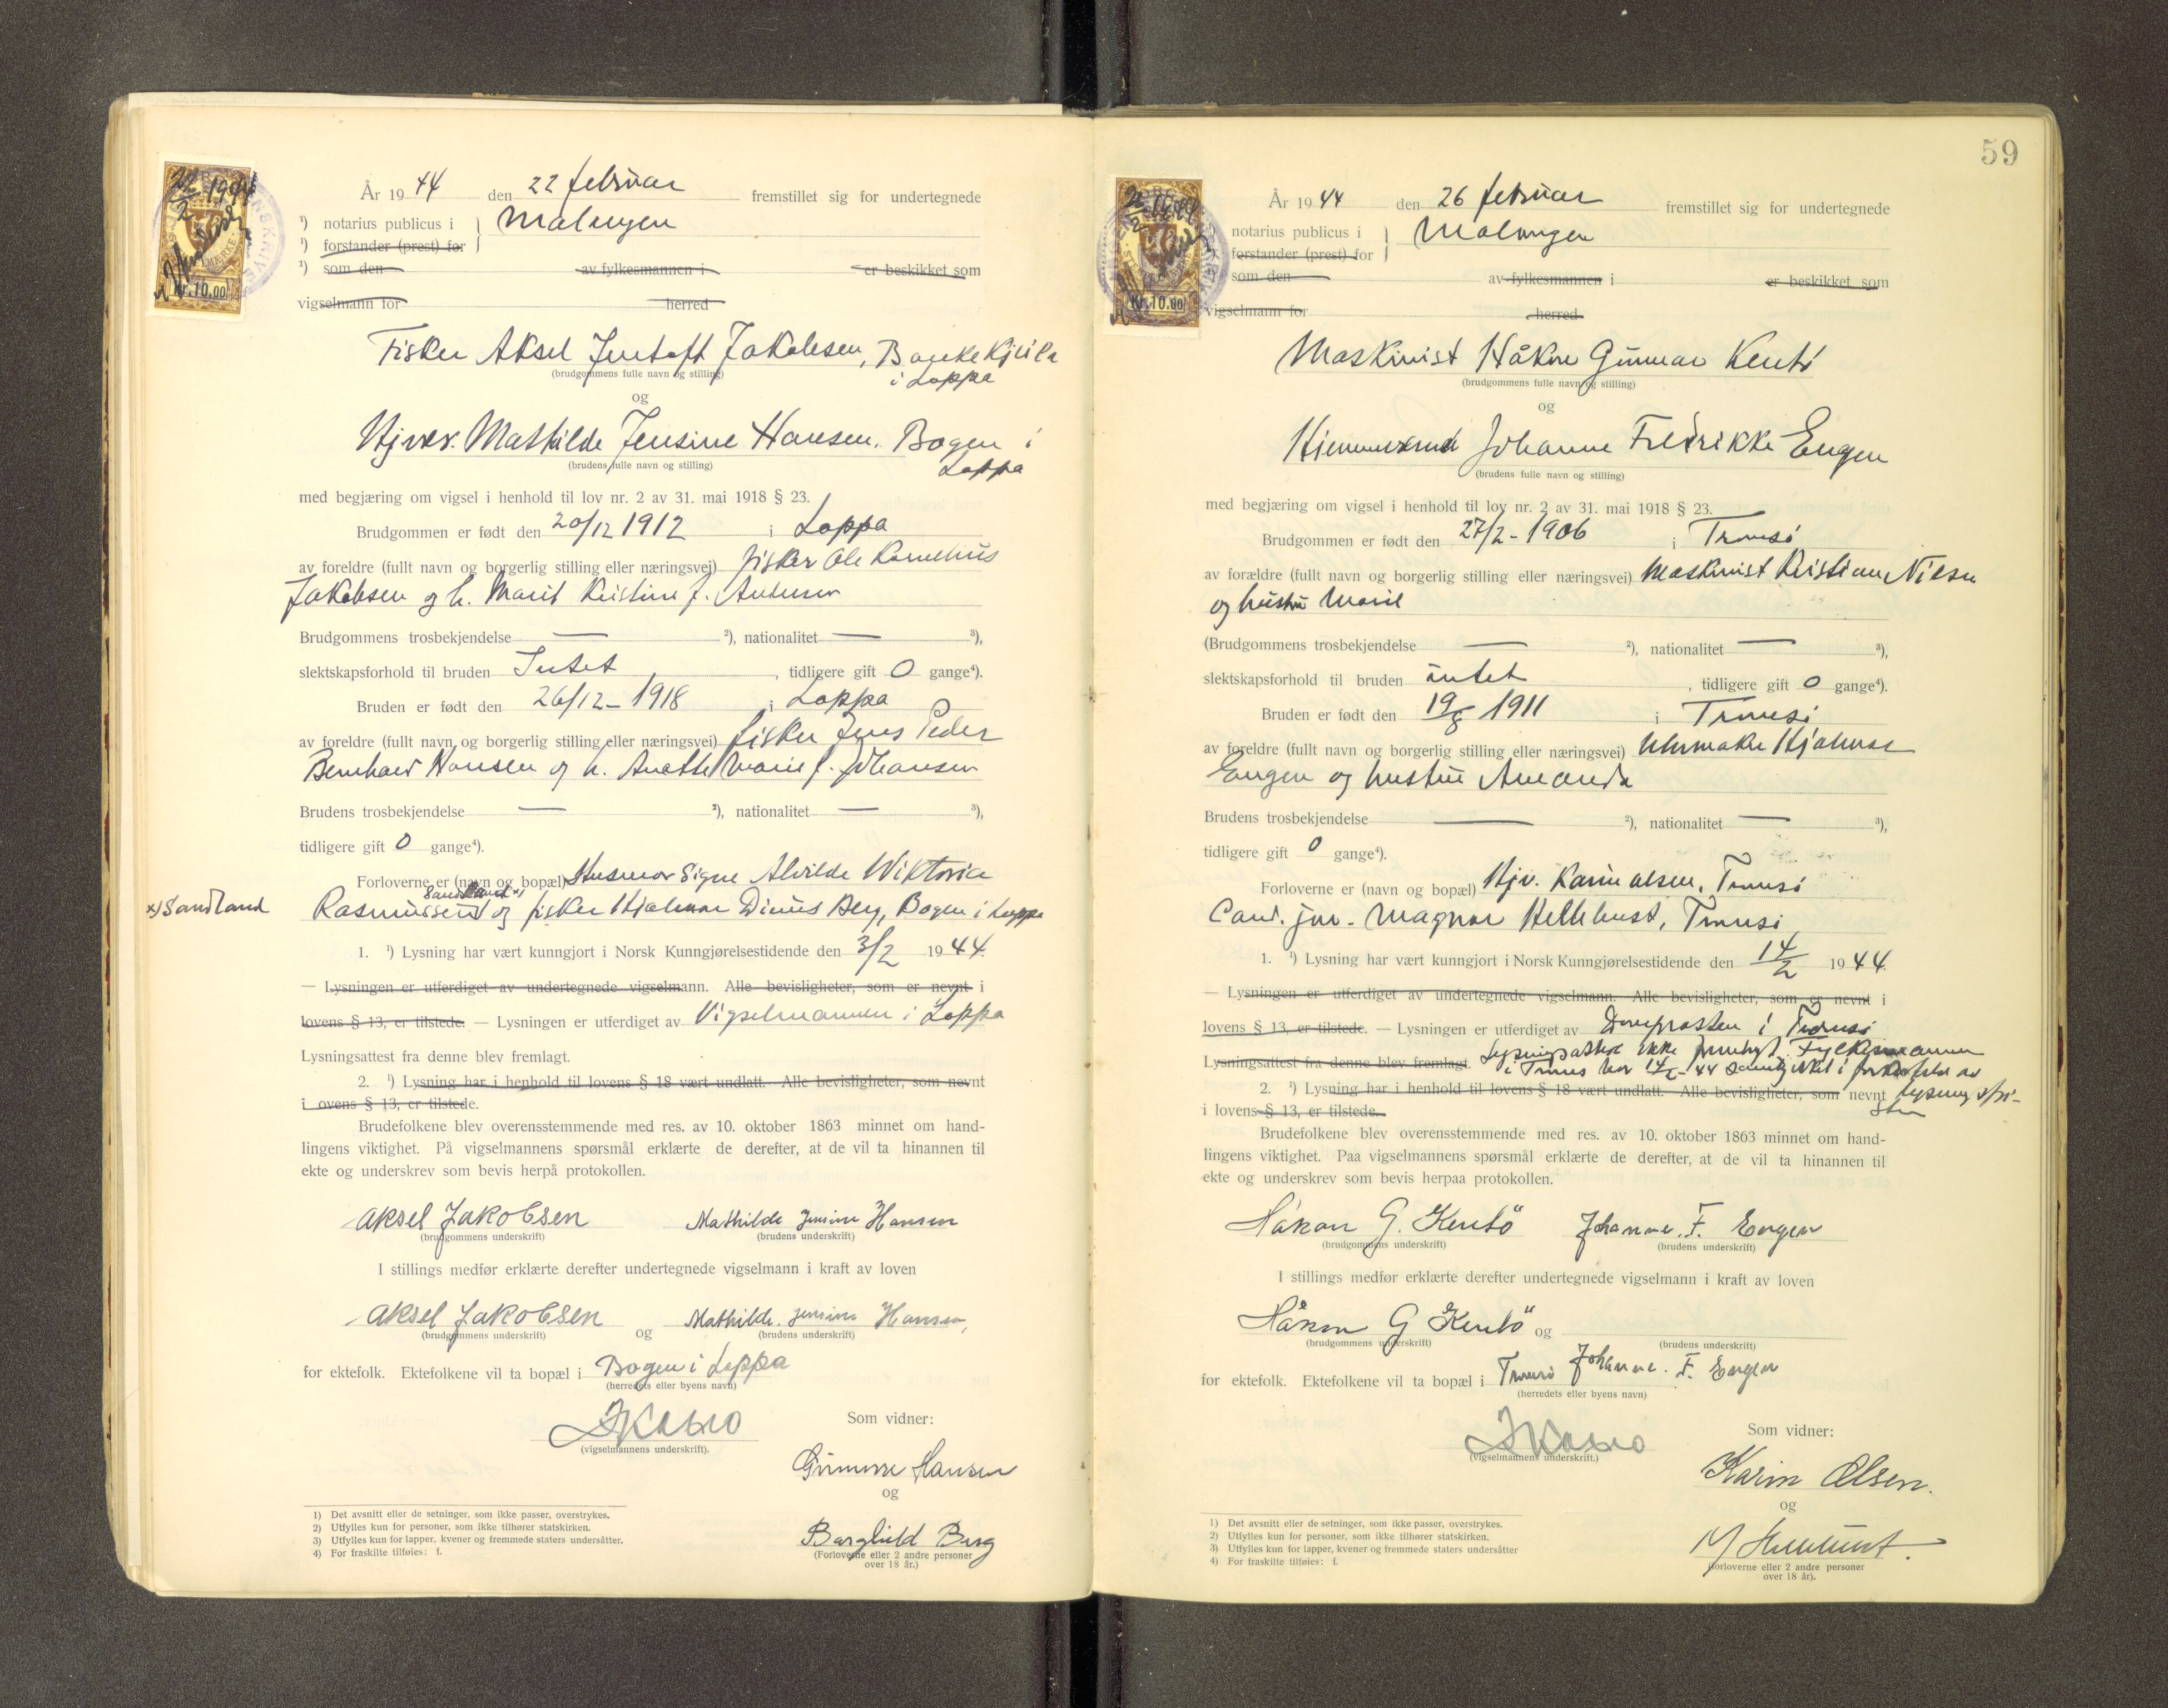 År 1944 den 22 februar fremstillet sig for undertegnede
¹) notarius publicus i Malangen
¹) forstander (prest) for
¹) som den av fylkesmannen i er beskikket som
vigselmann for herred
Kr. 10.00
Fisker Aksel Jentoft Jakobsen,
(brudgommens fulle navn og stilling)
i Loppa
og
Hjvr. Mathilde Jensine Hansen. Bogen i
(brudens fulle navn og stilling)
Loppa
med begjæring om vigsel i henhold til lov nr. 2 av 31. mai 1918 § 23.
Brudgommen er født den 20/12 1912 i Loppa
av foreldre (fullt navn og borgerlig stilling eller næringsvei) fisker Ole Kornelius
Jakobsen og h. Marit Kristine f. Antonsen
Brudgommens trosbekjendelse — ²), nationalitet — ³),
slektskapsforhold til bruden Intet, tidligere gift 0 gange⁴).
Bruden er født den 26/12 - 1918 i Loppa
av foreldre (fullt navn og borgerlig stilling eller næringsvei) fisker Jens Peder
Bernhard Hansen og h. Anethe Marie f. Johansen
Brudens trosbekjendelse — ²), nationalitet — ³),
tidligere gift 0 gange⁴).
Forloverne er (navn og bopæl) Husmor Signe Alvilde Viktoria
x) Sandland
Rasmussen og fisker Hjalmar Dinus Berg, Bogen i Loppa
1. ¹) Lysning har vært kunngjort i Norsk Kunngjørelsestidende den 3/2 1944.
— Lysningen er utferdiget av undertegnede vigselmann. Alle bevisligheter, som er nevnt i
lovens § 13, er tilstede. — Lysningen er utferdiget av Vigselmannen i Loppa
Lysningsattest fra denne blev fremlagt.
2. ¹) Lysning har i henhold til lovens § 18 vært undlatt. Alle bevisligheter, som nevnt
i ovens § 13, er tilstede.
Brudefolkene blev overensstemmende med res. av 10. oktober 1863 minnet om hand-
lingens viktighet. På vigselmannens spørsmål erklærte de derefter, at de vil ta hinannen til
ekte og underskrev som bevis herpå protokollen.
Aksel Jakobsen Mathilde Jensine Hansen
(brudgommens underskrift) (brudens underskrift)
I stillings medfør erklærte derefter undertegnede vigselmann i kraft av loven
Aksel Jakobsen og Mathilde Jensine Hansen,
(brudgommens underskrift) (brudens underskrift)
for ektefolk. Ektefolkene vil ta bopæl i Bogen i Loppa
(herredets eller byens navn)
(vigselmannens underskrift).
Som vidner:
Hansen
og
Borghild Berg
(Forloverne eller 2 andre personer
over 18 år.)
1) Det avsnitt eller de setninger, som ikke passer, overstrykes.
2) Utfylles kun for personer, som ikke tilhører statskirken.
3) Utfylles kun for lapper, kvener og fremmede staters undersåtter.
4) For fraskilte tilføies: f.
59
År 1944 den 26 februar fremstillet sig for undertegnede
notarius publicus i Malangen
forstander (prest) for
som den av fylkesmannen i er beskikket som
vigselmann for herred
Kr. 10.00
Maskinist Håkon Gunnar Kentø
(brudgommens fulle navn og stilling)
og
Hjemmeværende Johanne Fredrikke Engen
(brudens fulle navn og stilling)
med begjæring om vigsel i henhold til lov nr. 2 av 31. mai 1918 § 23.
Brudgommen er født den 27/2 - 1906 i Tromsø
av forældre (fullt navn og borgerlig stilling eller næringsvei) Maskinist Kristian Nilsen
og hustru Marie
(Brudgommens trosbekjendelse — ²), nationalitet — ³),
slektskapsforhold til bruden intet, tidligere gift 0 gange⁴).
Bruden er født den 19/8 1911 i Tromsø
av foreldre (fullt navn og borgerlig stilling eller næringsvei) Uhrmaker Hjalmar
Engen og hustru Amanda
Brudens trosbekjendelse — ²), nationalitet — ³),
tidligere gift 0 gange⁴).
Forloverne er (navn og bopæl) Hjv. Karin Olsen, Tromsø
Cand. jur. Magnar Tromsø
1. ¹) Lysning har vært kunngjort i Norsk Kunngjørelsestidende den 14/2 1944.
— Lysningen er utferdiget av undertegnede vigselmann. Alle bevisligheter, som er nevnt i
lovens § 13, er tilstede. — Lysningen er utferdiget av Domprosten i Tromsø
Lysningsattest fra denne blev fremlagt. Lysningsattest ikke fremlagt. Fylkesmannen
i Troms har 14/2-44 samtykket i forkortelse av
2. ¹) Lysning har i henhold til lovens § 18 vært undlatt. Alle bevisligheter, som nevnt lysningsfri-
i lovens § 13, er tilstede. sten
Brudefolkene blev overensstemmende med res. av 10. oktober 1863 minnet om hand-
lingens viktighet. Paa vigselmannens spørsmål erklærte de derefter, at de vil ta hinannen til
ekte og underskrev som bevis herpaa protokollen.
Håkon G. Kentö Johanne. F. Engen
(brudgommens underskrift) (brudens underskrift)
I stillings medfør erklærte derefter undertegnede vigselmann i kraft av loven
Håkon G Kentö og
(brudgommens underskrift) (brudens underskrift)
Johanne. F. Engen
for ektefolk. Ektefolkene vil ta bopæl i Tromsø
(herredets eller byens navn)
(vigselmannens underskrift.)
Som vidner:
Karin Olsen.
og
(forloverne eller 2 andre personer
over 18 år).
1) Det avsnitt eller de setninger, som ikke passer, overstrykes.
2) Utfylles kun for personer, som ikke tilhører statskirken.
3) Utfylles kun for lapper, kvener og fremmede staters undersåtter
4) For fraskilte tilføies: f.